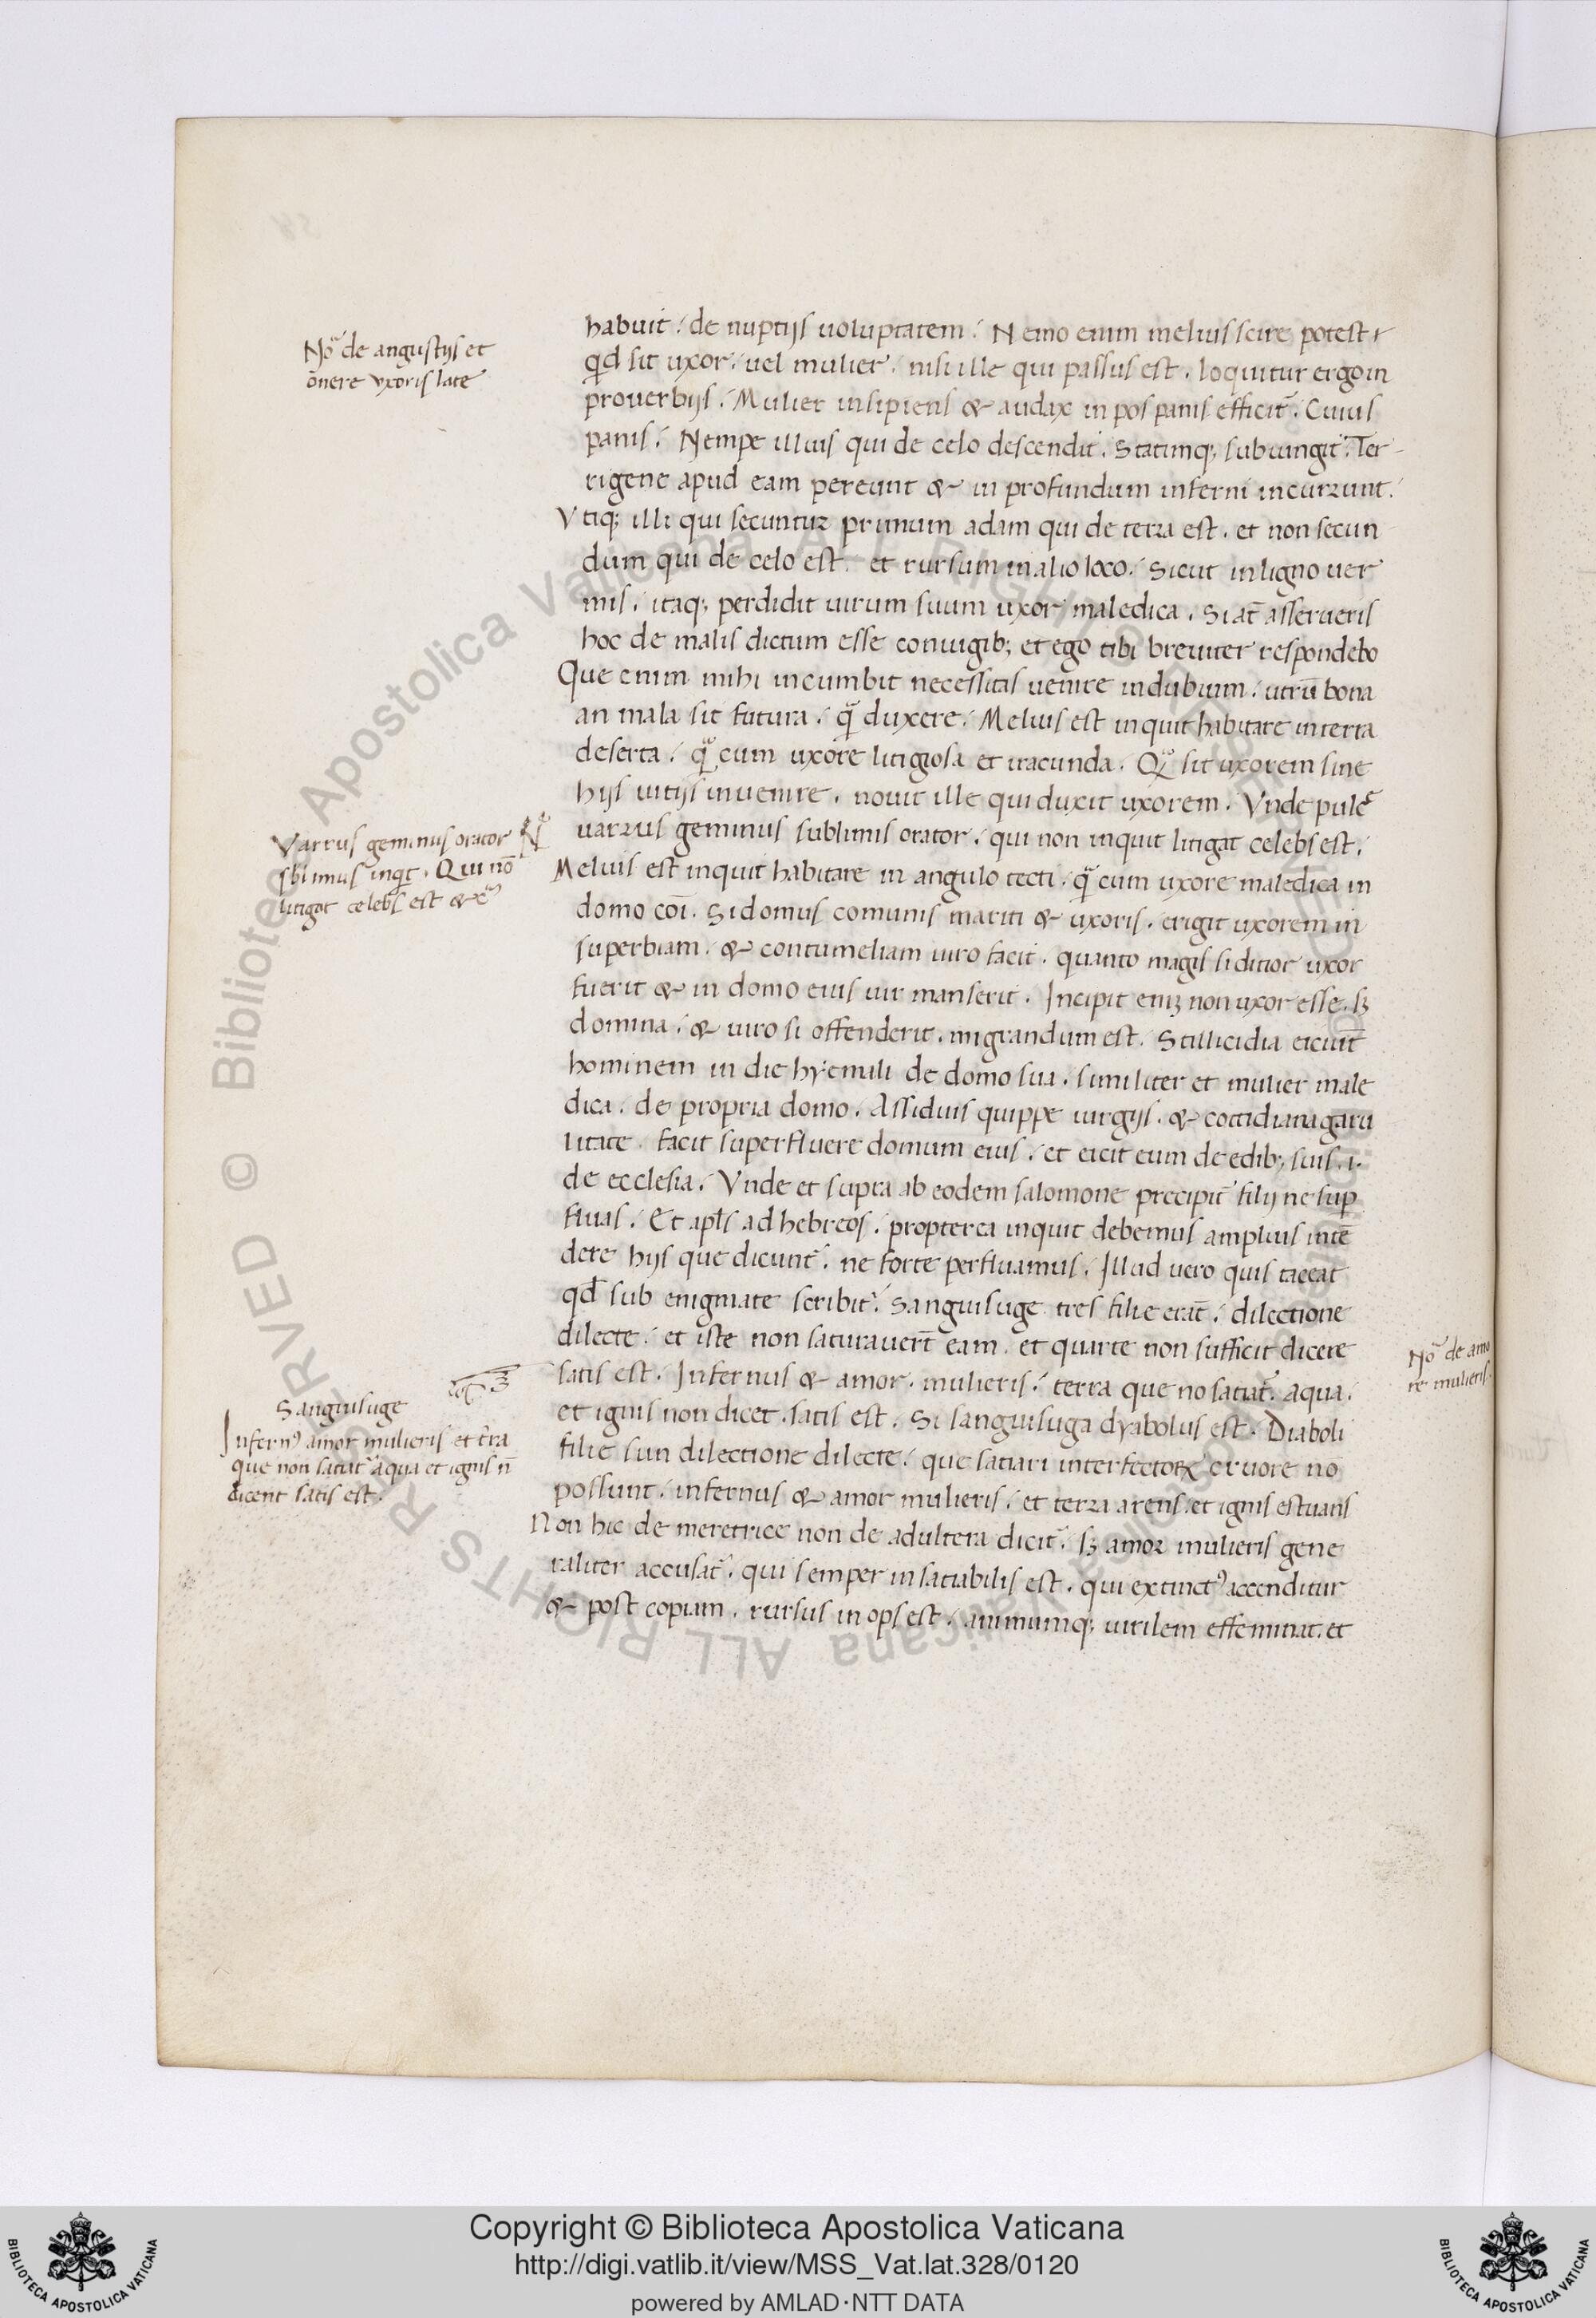 habuit / de nuptijs uoluptatem / Nemo enim melius scire potest
qd sit uxor / uel mulier / nisi ille qui passus est . loquitur ergo in
prouerbijs / Mulier insipiens & audax inpos panis efficit̄ . Cuius
panis / Nempe illius qui de celo descendit . Statimq; subiungit . Ter-
rigene apud eam pereunt & in profundum inferni incurrunt .
Vtiq; illi qui secuntur primum adam qui de terra est . et non secun
dum qui de celo est . et rursum in alio loco / Sicut in ligno uer
mis / itaq; perdidit uirum suum uxor maledica . Si at̄ asserueris
hoc de malis dictum esse coniugib; et ego tibi breuiter respondebo
Que enim mihi incumbit necessitas uenire in dubium / utrū bona
an mala sit futura / qᵃ duxere / Melius est inquit habitare in terra
deserta / qᵃ cum uxore litigiosa et iracunda . Qᵃ sit uxorem sine
hijs uitijs inuenire . nouit ille qui duxit uxorem . Vnde pulcͤ
uarrus geminus sublimis orator / qui non inquit litigat celebs est /
Melius est inquit habitare in angulo tecti / qᵃ cum uxore maledica in
domo coī . Si domus comunis mariti & uxoris . erigit uxorem in
superbiam . & contumeliam uiro facit . quanto magis si ditior uxor
fuerit & in domo eius uir manserit . Incipit enꝫ non uxor esse . sꝫ
domina / & uiro si offenderit . migrandum est . Stillicidia eiciūt
hominem in die hyemali de domo sua . similiter et mulier male
dica . de propria domo . Assiduis quippe iurgijs . & cottidiana garu
litate . facit superfluere domum eius / et eicit eum de edib; suis .i.
de ecclesia / Vnde et supra ab eodem salomone precipit̄ fili ne suꝑ
fluas / Et apl̄s ad hebreos / propterea inquit debemus amplius intē
dere hijs que dicunt̄ . ne forte perfluamus / Illud uero quis taceat
qd̄ sub enigmate scribit̄ / Sanguisuge tres filie erāt / dilectione
dilecte / et iste non saturauert̄ eam . et quarte non sufficit dicere
satis est / Infernus & amor . mulieris / terra que no satiat̄ . aqua .
et ignis non dicet . satis est . Si sanguisuga dyabolus est . Diaboli
filie sun dilectione dilecte / que satiari interfectoꝝ cruore nō
possunt / infernus & amor mulieris / et terra arens . et ignis estuans
Non hic de meretrice non de adultera dicit̄ / sꝫ amor mulieris gene
raliter accusat̄ . qui semper insatiabilis est . qui extinctꝰ accenditur
& post copiam . rursus inops est / animumq; uirilem effeminat . et
Noᵃ de angustijs et
onere vxoris late
Varrus geminus orator
sbl̄imus inqt . Qui nō
litigat celebs est &c̄
Sanguisuge
Infernꝰ amor mulieris et tr̄a
que non satiat̄ aqua et ignis n̄
dicent satis est .
Noᵃ de amo
re mulieris .
© Biblioteca Apostolica Vaticana ALL RIGHTS RESERVED
Copyright © Biblioteca Apostolica Vaticana
http://digi.vatlib.it/view/MSS_Vat.lat.328/0120
powered by AMLAD·NTT DATA
BIBLIOTECA APOSTOLICA VATICANA
BIBLIOTECA APOSTOLICA VATICANA